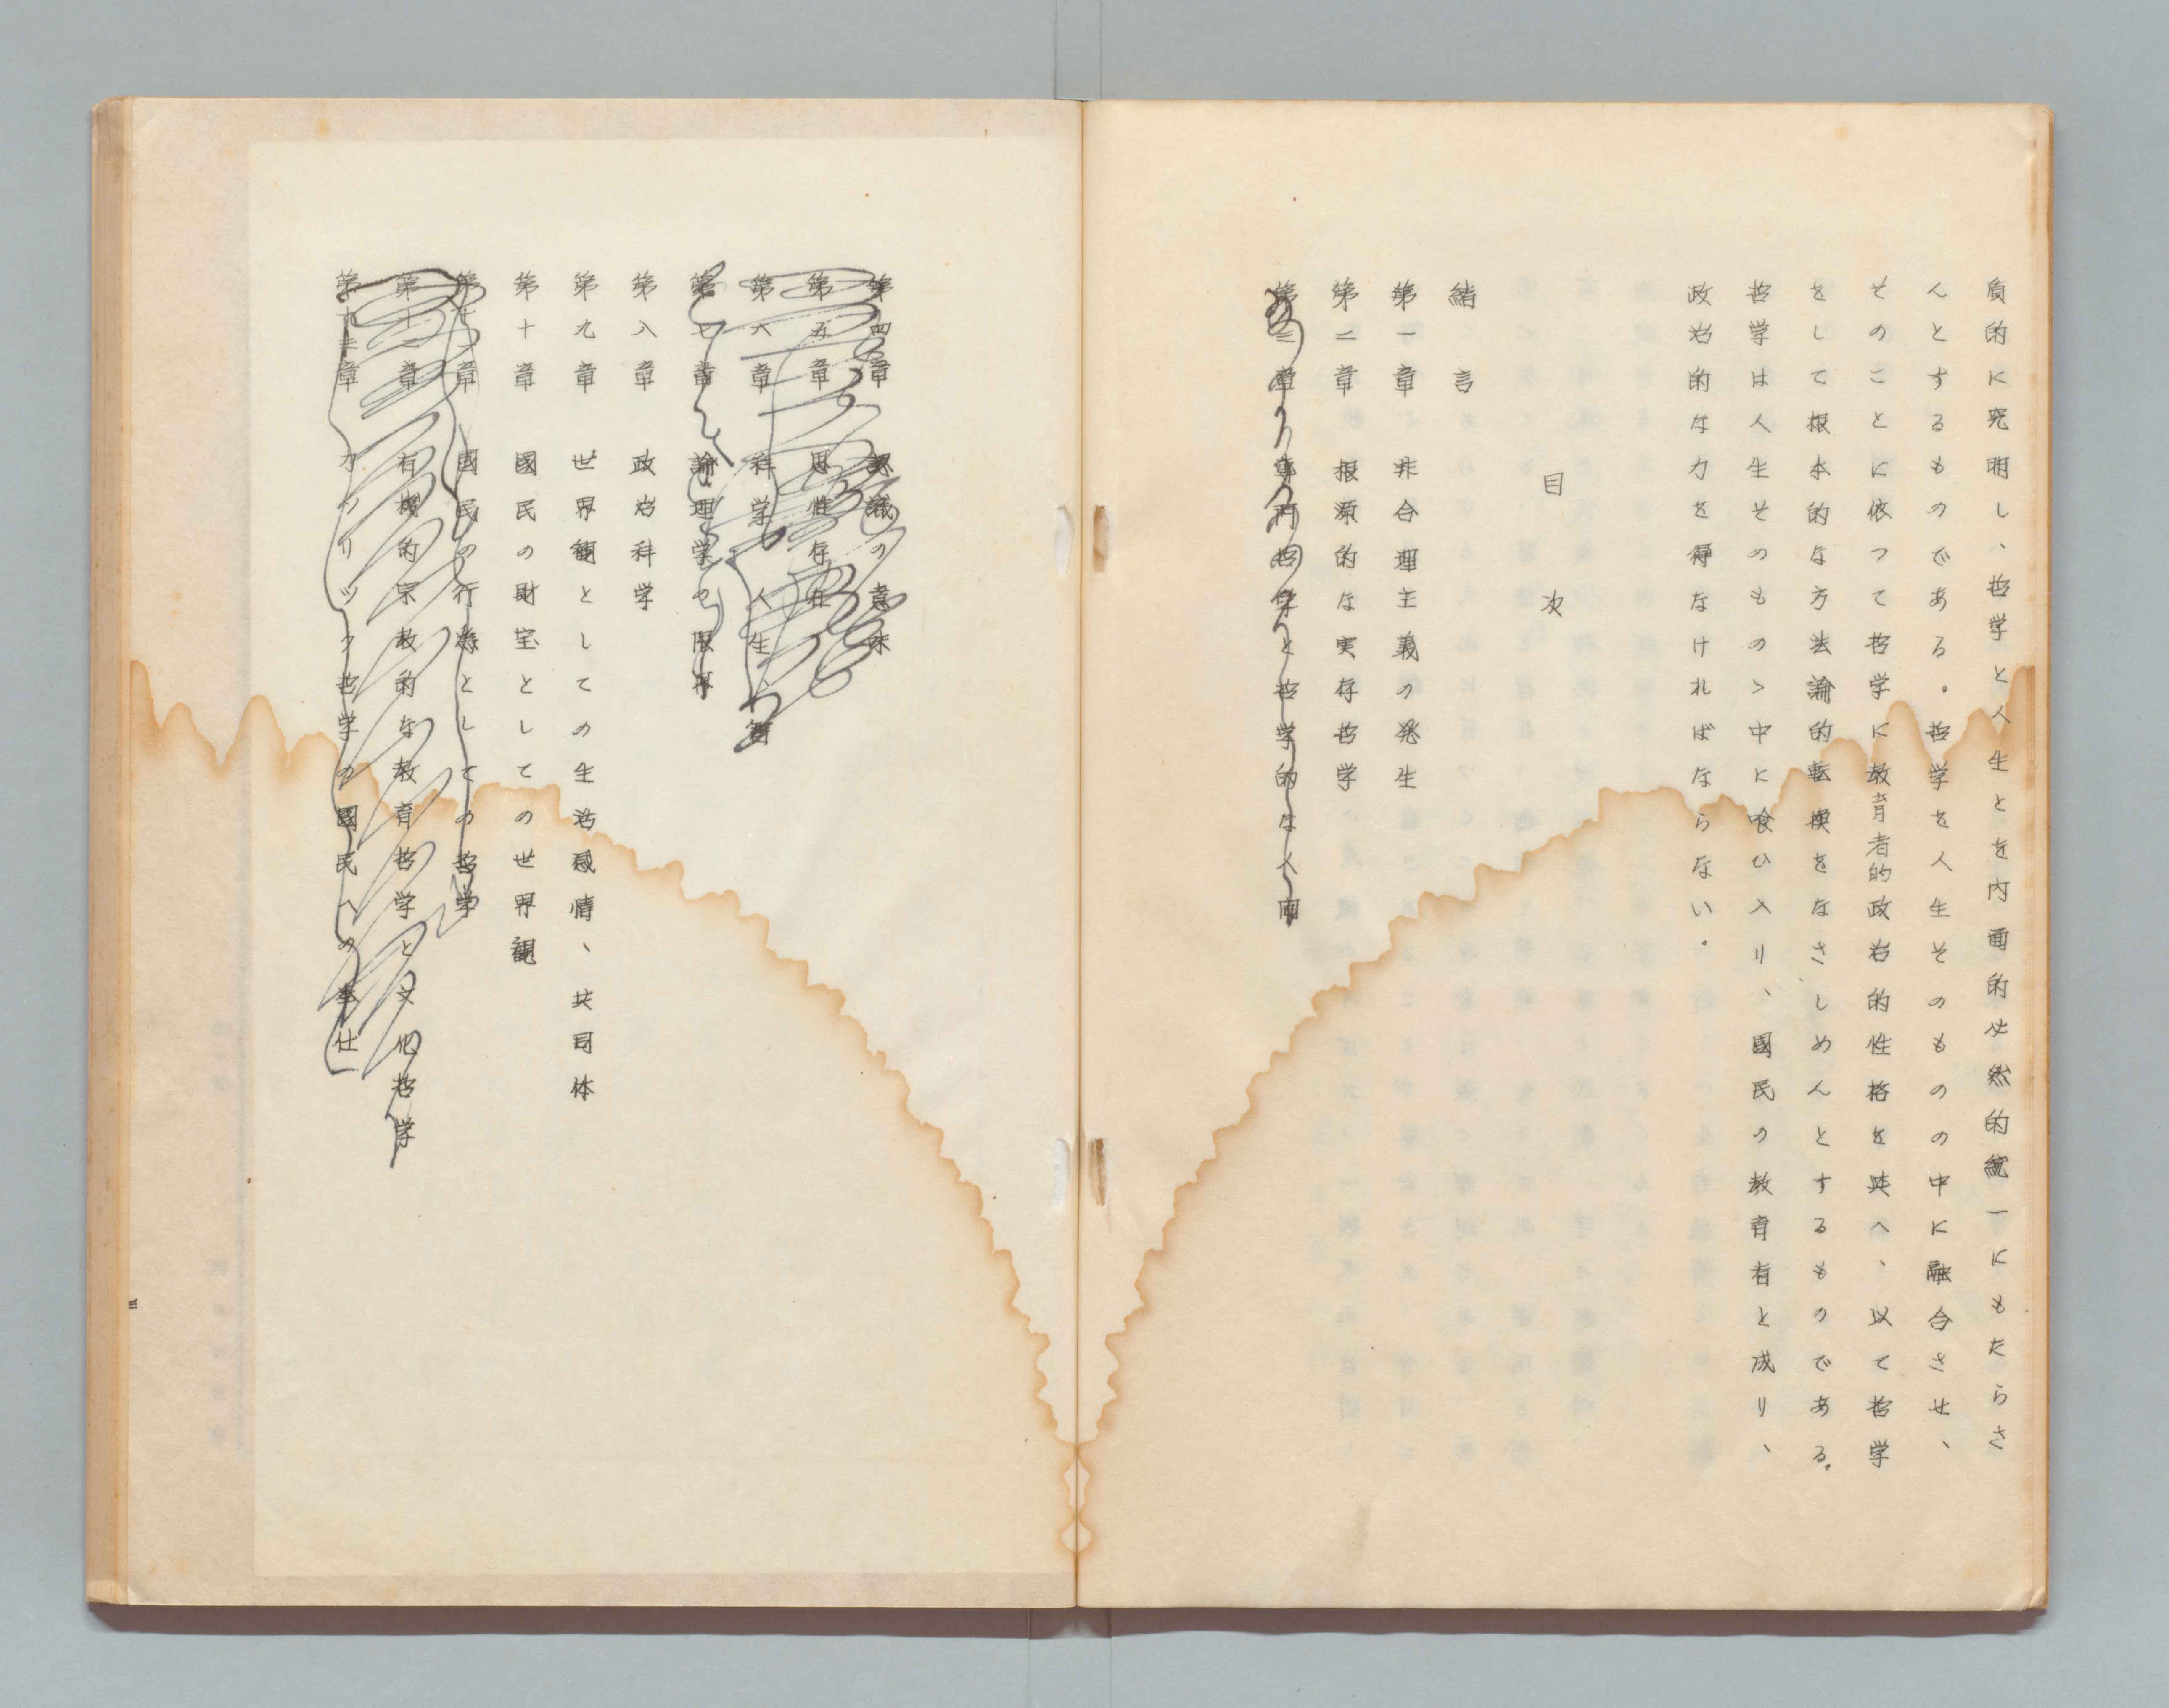 質的に究明し、哲学と人生とを内面的必然的統一にもたらさ
んとするものである。哲学を人生そのものの中に融合させ、
そのことに依つて哲学に教育者的政治的性格を与へ、以て哲学
をして根本的な方法論的転換をなさしめんとするものである。
哲学は人生そのものゝ中に喰ひ入り、國民の教育者と成り、
政治的な力を得なければならない。
目次
緒言
第一章 非合理主義の発生
第二章 根源的な実存哲学
第三章 専門哲学と哲学的な人間
第四章 認識の意味
第五章 思惟存在
第六章 科学、人生、
第七章 論理学の限界
第八章 政治科学
第九章 世界観としての生活感情、共同体
第十章 國民の財宝としての世界観
第十一章 國民の行為としての哲学
第十二章 有機的宗教的な教育哲学と文化哲学
第十三章 カソリツク哲学の國民への奉仕